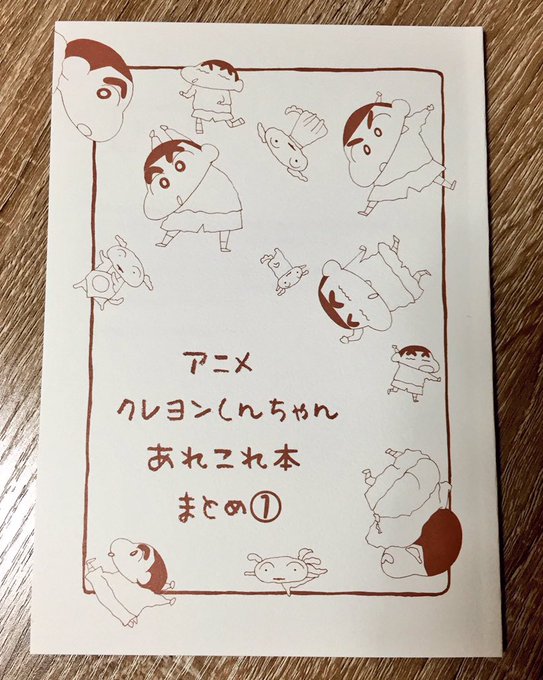 アニメ
クレヨンしんちゃん
あれこれ本
まとめ①